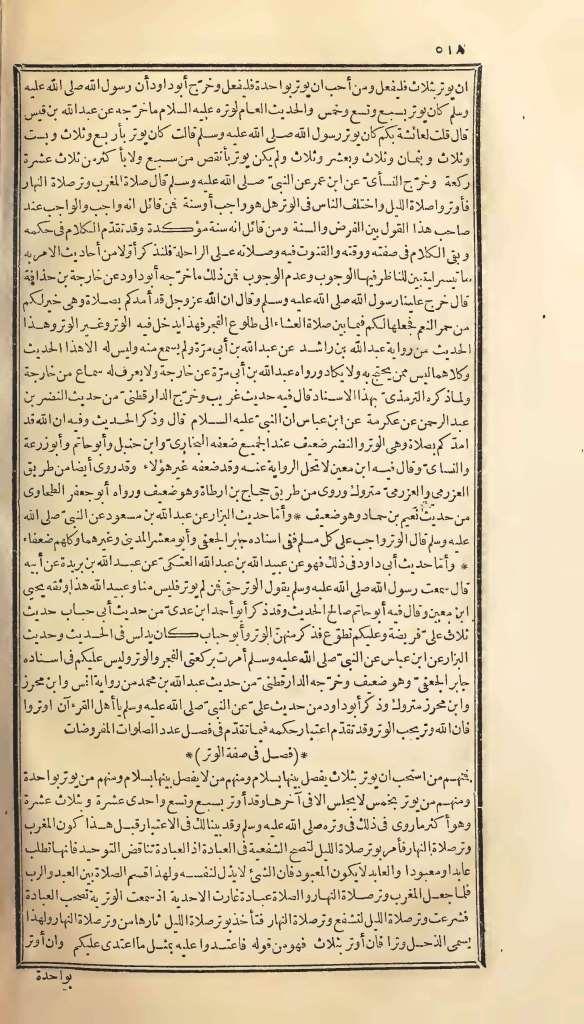 ٥١٨
ان يوتر بثلاث فليفعل ومن أحب ان يوتر بواحدة فليفعل وخرج أبو داود أن رسول الله صلى الله عليه
وسلم كان يوتر بسبع وتسع وخمس والحديث العام لوتره عليه السلام ما خرجه عن عبد الله بن قيس
قال قلت لعائشة بكم كان يوتر رسول الله صلى الله عليه وسلم قالت كان يوتر بأربع وثلاث وبست
وثلاث وبثمان وثلاث وبعشر وثلاث ولم يكن يوتر بأنقص من سبع ولا بأكثر من ثلاث عشرة
ركعة وخرج النسائ عن ابن عمر عن النبي صلى الله عليه وسلم قال صلاة المغرب وتر صلاة النهار
فأوتروا صلاة الليل واختلف الناس فى الوتر هل هو واجب أو سنة فمن قائل انه واجب والواجب عند
صاحب هذا القول بين الفرض والسنة ومن قائل انه سنة مؤكدة وقد تقدّم الكلام فى حكمه
وبقى الكلام فى صفته ووقته والقنوت فيه وصلاته على الراحلة فلنذكر أولا من أحاديث الامر به
ما تيسر ليتبين للناظر فيها الوجوب وعدم الوجوب فمن ذلك ما خرجه أبو داود عن خارجة بن حذافة
قال خرج علينا رسول الله صلى الله عليه وسلم وقال ان الله عز وجل قد أمدكم بصلاة وهى خير لكم
من حمر النعم فجعلها لكم فيما بين صلاة العشاء الى طلوع الفجر فهذا يدخل فيه الوتر وغير الوتر وهذا
الحديث من رواية عبد الله بن راشد عن عبد الله بن أبى مرّة ولم يسمع منه وليس له الا هذا الحديث
وكلاهما ليس ممن يحتج به ولا يكاد ورواه عبد الله بن أبى مرّة عن خارجة ولا يعرف له سماع من خارجة
ولما ذكره الترمذى بهذا الاسناد قال فيه حديث غريب وخرج الدارقطنى من حديث النضر بن
عبد الرحمن عن عكرمة عن ابن عباس ان النبي عليه السلام قال وذكر الحديث وفيه ان الله قد
امدّكم بصلاة وهى الوتر والنضر ضعيف عند الجميع ضعفه البخارى وابن حنبل وأبو حاتم وأبو زرعة
والنساى وقال فيه ابن معين لا تحل الرواية عنه وقد ضعفه غير هؤلاء وقد روى أيضا من طريق
العزرمى والعزرمى متروك وروى من طريق حجاج بن ارطاة وهو ضعيف ورواه أبو جعفر الطحاوى
من حديث نعيم بن حماد وهو ضعيف * وأما حديث البزار عن عبد الله بن مسعود عن النبي صلى الله
عليه وسلم قال الوتر واجب على كل مسلم ففى اسناده جابر الجعفى وأبو معشر المدينى وغيرهما وكلهم ضعفاء
* وأما حديث أبى داود فى ذلك فهو عن عبيد الله بن عبد الله العتكى عن عبد الله بن بريدة عن أبيه
قال سمعت رسول الله صلى الله عليه وسلم يقول الوتر حق فمن لم يوتر فليس منا وعبيد الله هذا وثقه يحيى
ابن معين وقال فيه أبو حاتم صالح الحديث وقد ذكر أبو أحمد ابن عدى من حديث أبى حباب حديث
ثلاث علىّ فريضة وعليكم تطوّع فذكر منهنّ الوتر وأبو حباب كان يدلس فى الحديث وحديث
البزار عن ابن عباس عن النبي صلى الله عليه وسلم أمرت بركعتى الفجر والوتر وليس عليكم فى اسناده
جابر الجعفى وهو ضعيف وخرّجه الدارقطنى من حديث عبد الله بن محمد من رواية انس وابن محرز
وابن محرز متروك وذكر أبو داود من حديث علىّ عن النبي صلى الله عليه وسلم يا أهل القرءآن اوتروا
فان الله وتر يحب الوتر وقد تقدّم اعتبار حكمه فيما تقدّم فى فصل عدد الصلوات المفروضات
*(فصل فى صفة الوتر)*
فمنهم من استحب ان يوتر بثلاث يفصل بينها بسلام ومنهم من لا يفصل بينها بسلام ومنهم من يوتر بواحدة
ومنهم من يوتر بخمس لا يجلس الا فى آخرها وقد أوتر بسبع وتسع واحدى عشرة وبثلاث عشرة
وهو أكثر ما روى فى ذلك فى وتره صلى الله عليه وسلم وقد بينا لك فى الاعتبار قبل هذا كون المغرب
وتر صلاة النهار فأمر بوتر صلاة الليل لتصح الشفعية فى العبادة اذ العبادة تناقض التوحيد فانها تطلب
عابدا ومعبودا والعابد لا يكون المعبود فان الشئ لا يذل لنفسه ولهذا قسم الصلاة بين العبد والرب
فلما جعل المغرب وتر صلاة النهار والصلاة عبادة غارت الاحدية اذ سمعت الوترية تصحب العبادة
فشرعت وتر صلاة الليل لتشفع وتر صلاة النهار فتأخذ بوتر صلاة الليل ثارها من وتر صلاة النهار ولهذا
يسمى الذحل وترا فان أوتر بثلاث فهو من قوله فاعتدوا عليه بمثل ما اعتدى عليكم وان أوتر
بواحدة